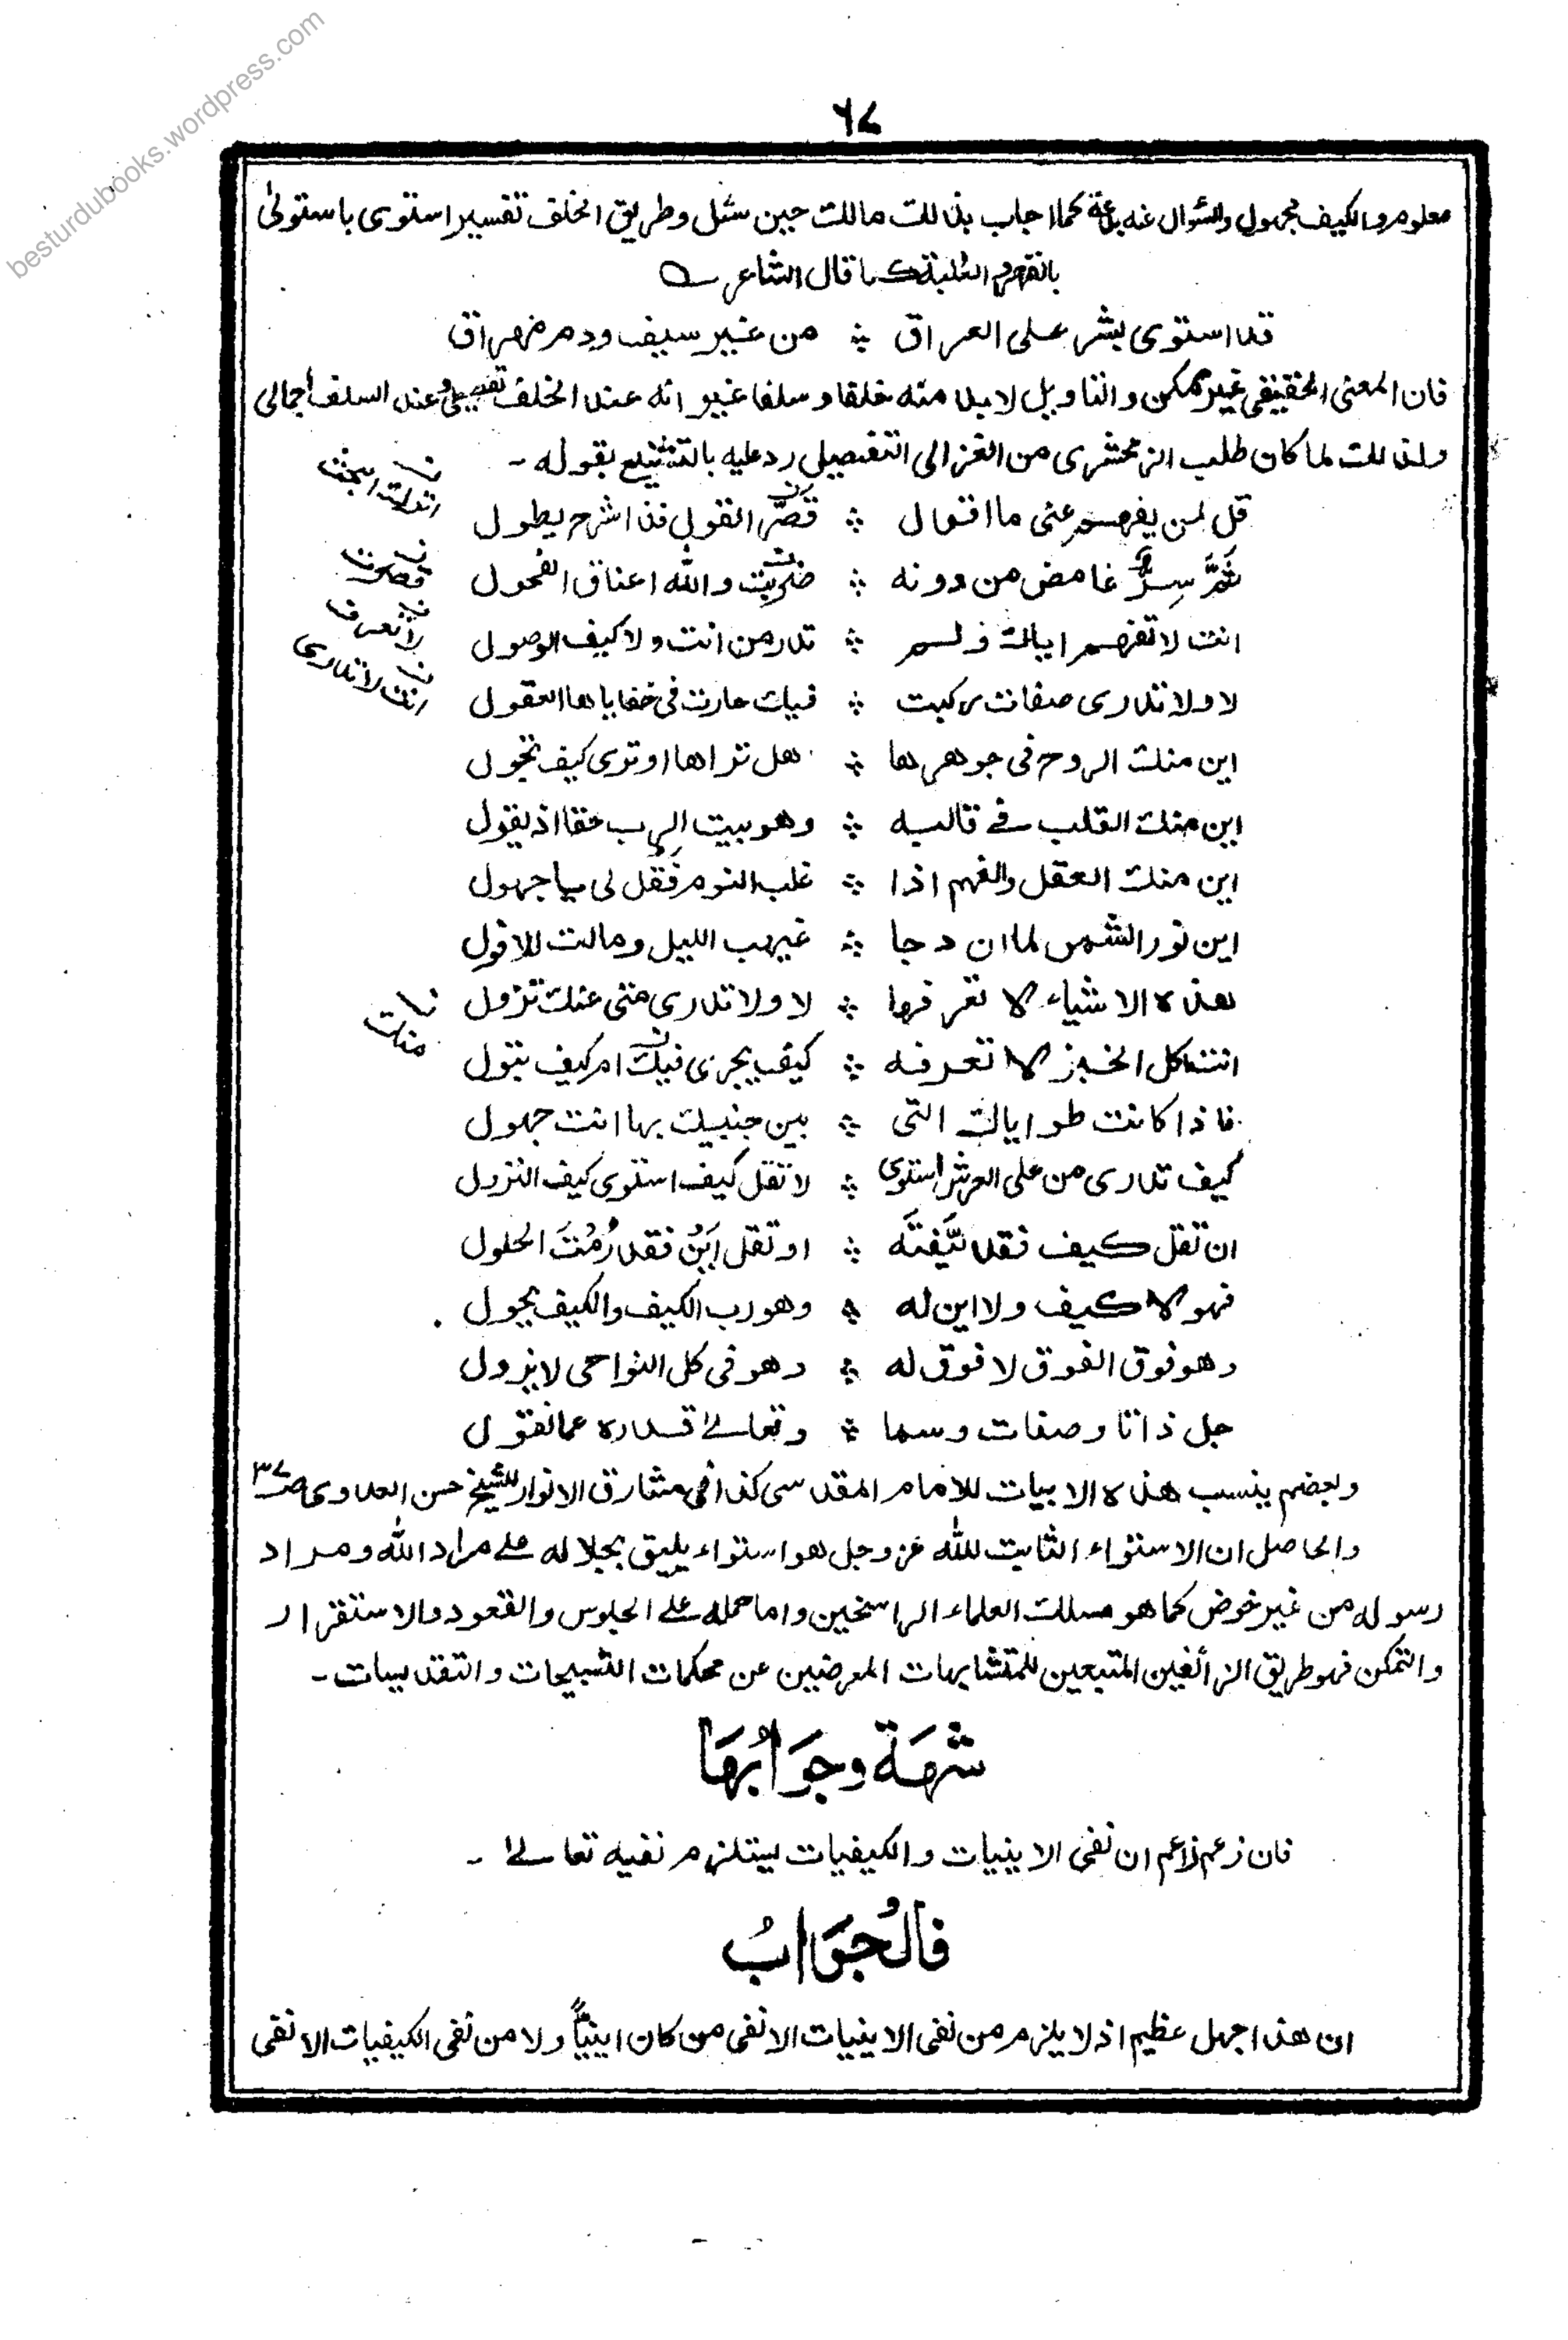 besturdubooks.wordpress.com
٦٧
معلوم والكيف مجهول والسؤال عنه بدعة كما اجاب بذالك مالك حين سئل وطريق الخلف تفسير استوى باستولى
بالقهر والغلبة كما قال الشاعر ؎
قد استوى بشر على العراق ؞ من غير سيف ودم مهراق
فان المعنى الحقيقى غير ممكن والتاويل لا بد منه خلفا وسلفا غير انه عند الخلف تفصيلى وعند السلف اجمالى
ولذالك لما كان طلب الزمخشرى من الغزالى التفصيلى رد عليه بالتشنيع بقوله ـ
قل لمن يفهم عنى ما اقول ؞ قصر القول فذا شرح يطول
اترك البحث
ثَمَّ سِرٌّ غامض من دونه ؞ ضربت والله اعناق الفحول
قصرت
انت لا تفهم اياك ولم ؞ تدر من انت ولا كيف الوصول
لا تعرف
لا ولا تدرى صفات ركبت ؞ فيك حارت فى خفاياها العقول
انت لا تدرى
اين منك الروح فى جوهرها ؞ هل تراها او ترى كيف تجول
اين منك القلب فى قالبه ؞ وهو بيت الرب حقا اذ يقول
اين منك العقل والفهم اذا ؞ غلب النوم فقل لى يا جهول
اين نور الشمس لما ان دجا ؞ غيهب الليل ومالت للافول
هذه الاشياء لا تعرفها ؞ لا ولا تدرى متى عنك تزول
منك
انت اكل الخبز لا تعرفه ؞ كيف يجرى فيك ام كيف تبول
فاذا كانت طواياك التى ؞ بين جنبيك بها انت جهول
كيف تدرى من على العرش استوى ؞ لا تقل كيف استوى كيف النزول
ان تقل كيف فقد كَيَّفتَه ؞ او تقل اَيْنَ فقد رُمْتَ الحلول
فهو لا كيف ولا اين له ؞ وهو رب الكيف والكيف يحول
وهو فوق الفوق لا فوق له ؞ وهو فى كل النواحى لا يزول
جل ذاتا وصفات وسما ؞ وتعالى قدره عما نقول
وبعضهم ينسب هذه الابيات للامام المقدسى كذا فى مشارق الانوار للشيخ حسن العدوى صـ٣٧
والحاصل ان الاستواء الثابت لله عز وجل هو استواء يليق بجلاله على مراد الله ومراد
رسوله من غير خوض كما هو مسلك العلماء الراسخين واما حمله على الجلوس والقعود والاستقرار
والتمكن فهو طريق الزائغين المتبعين للمتشابهات المعرضين عن محكمات التسبيحات والتقديسات ـ
شبهَة وجَوَابُهَا
فان زعم زاعم ان نفى الاينيات والكيفيات يستلزم نفيه تعالى ـ
فالْجَوَابُ
ان هذا جهل عظيم اذ لا يلزم من نفى الاينيات الا نفى من كان اينيًّا ولا من نفى الكيفيات الا نفى